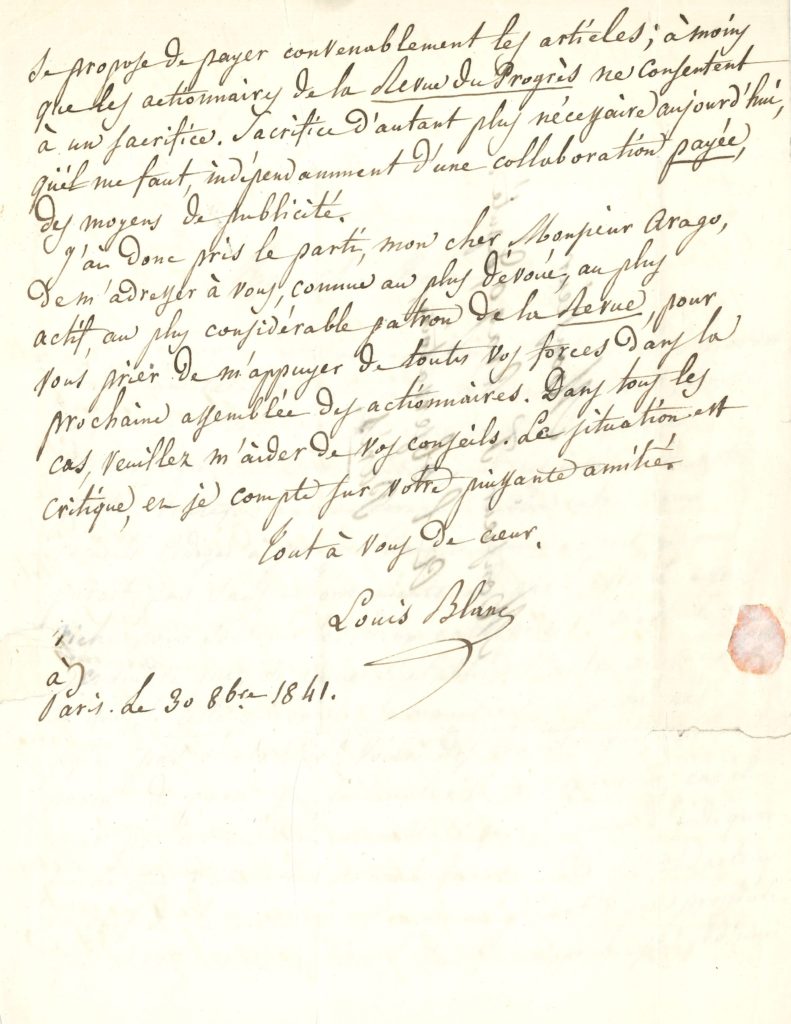 se propose de payer convenablement les articles ; à moins
que les actionnaires de la Revue du Progrès ne consentent
à un sacrifice. Sacrifice d'autant plus nécessaire aujourd'hui,
qu'il me faut, indépendamment d'une collaboration payée,
des moyens de publicité.
J'ai donc pris le parti, mon cher Monsieur Arago,
de m'adresser à vous, comme au plus dévoué, au plus
actif, au plus considérable patron de la Revue, pour
vous prier de m'appuyer de toutes vos forces dans la
prochaine assemblée des actionnaires. Dans tous les
cas, veuillez m'aider de vos conseils. La situation est
critique, et je compte sur votre puissante amitié.
Tout à vous de cœur.
Louis Blanc
Paris. Le 30 8bre 1841.